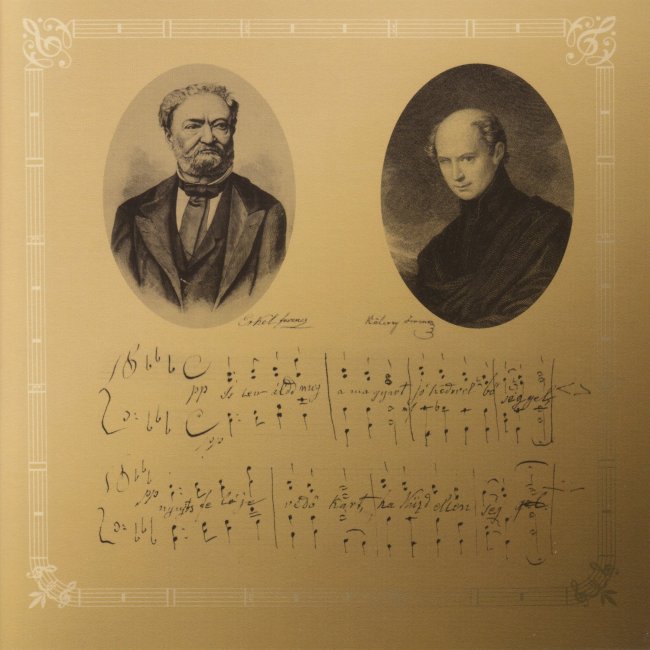 Erkel Ferencz
Kölcsey Ferencz
pp Isten áldd meg a magyart jó kedvel bő seggel
pp
pp nyujts fe lé je védő kart, ha küzd ellen ség gel